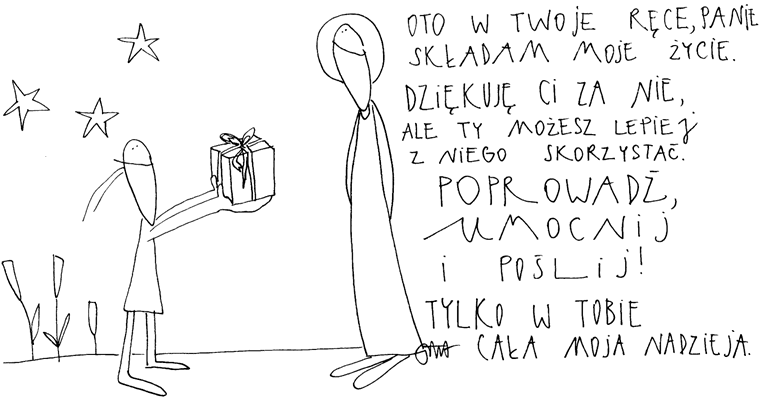 OTO W TWOJE RĘCE, PANIE
SKŁADAM MOJE ŻYCIE.
DZIĘKUJĘ CI ZA NIE,
ALE TY MOŻESZ LEPIEJ
Z NIEGO SKORZYSTAĆ.
POPROWADŹ,
UMOCNIJ
i POŚLIJ!
TYLKO W TOBIE
CAŁA MOJA NADZIEJA.